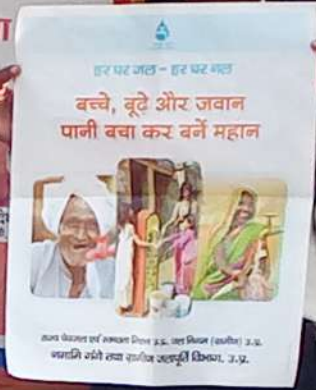 हर घर जल - हर घर नल
बच्चे, बूढ़े और जवान
पानी बचा कर बनें महान
राज्य पेयजल एवं स्वच्छता मिशन उ.प्र. जल निगम (ग्रामीण) उ.प्र.
नमामि गंगे तथा ग्रामीण जलापूर्ति विभाग, उ.प्र.